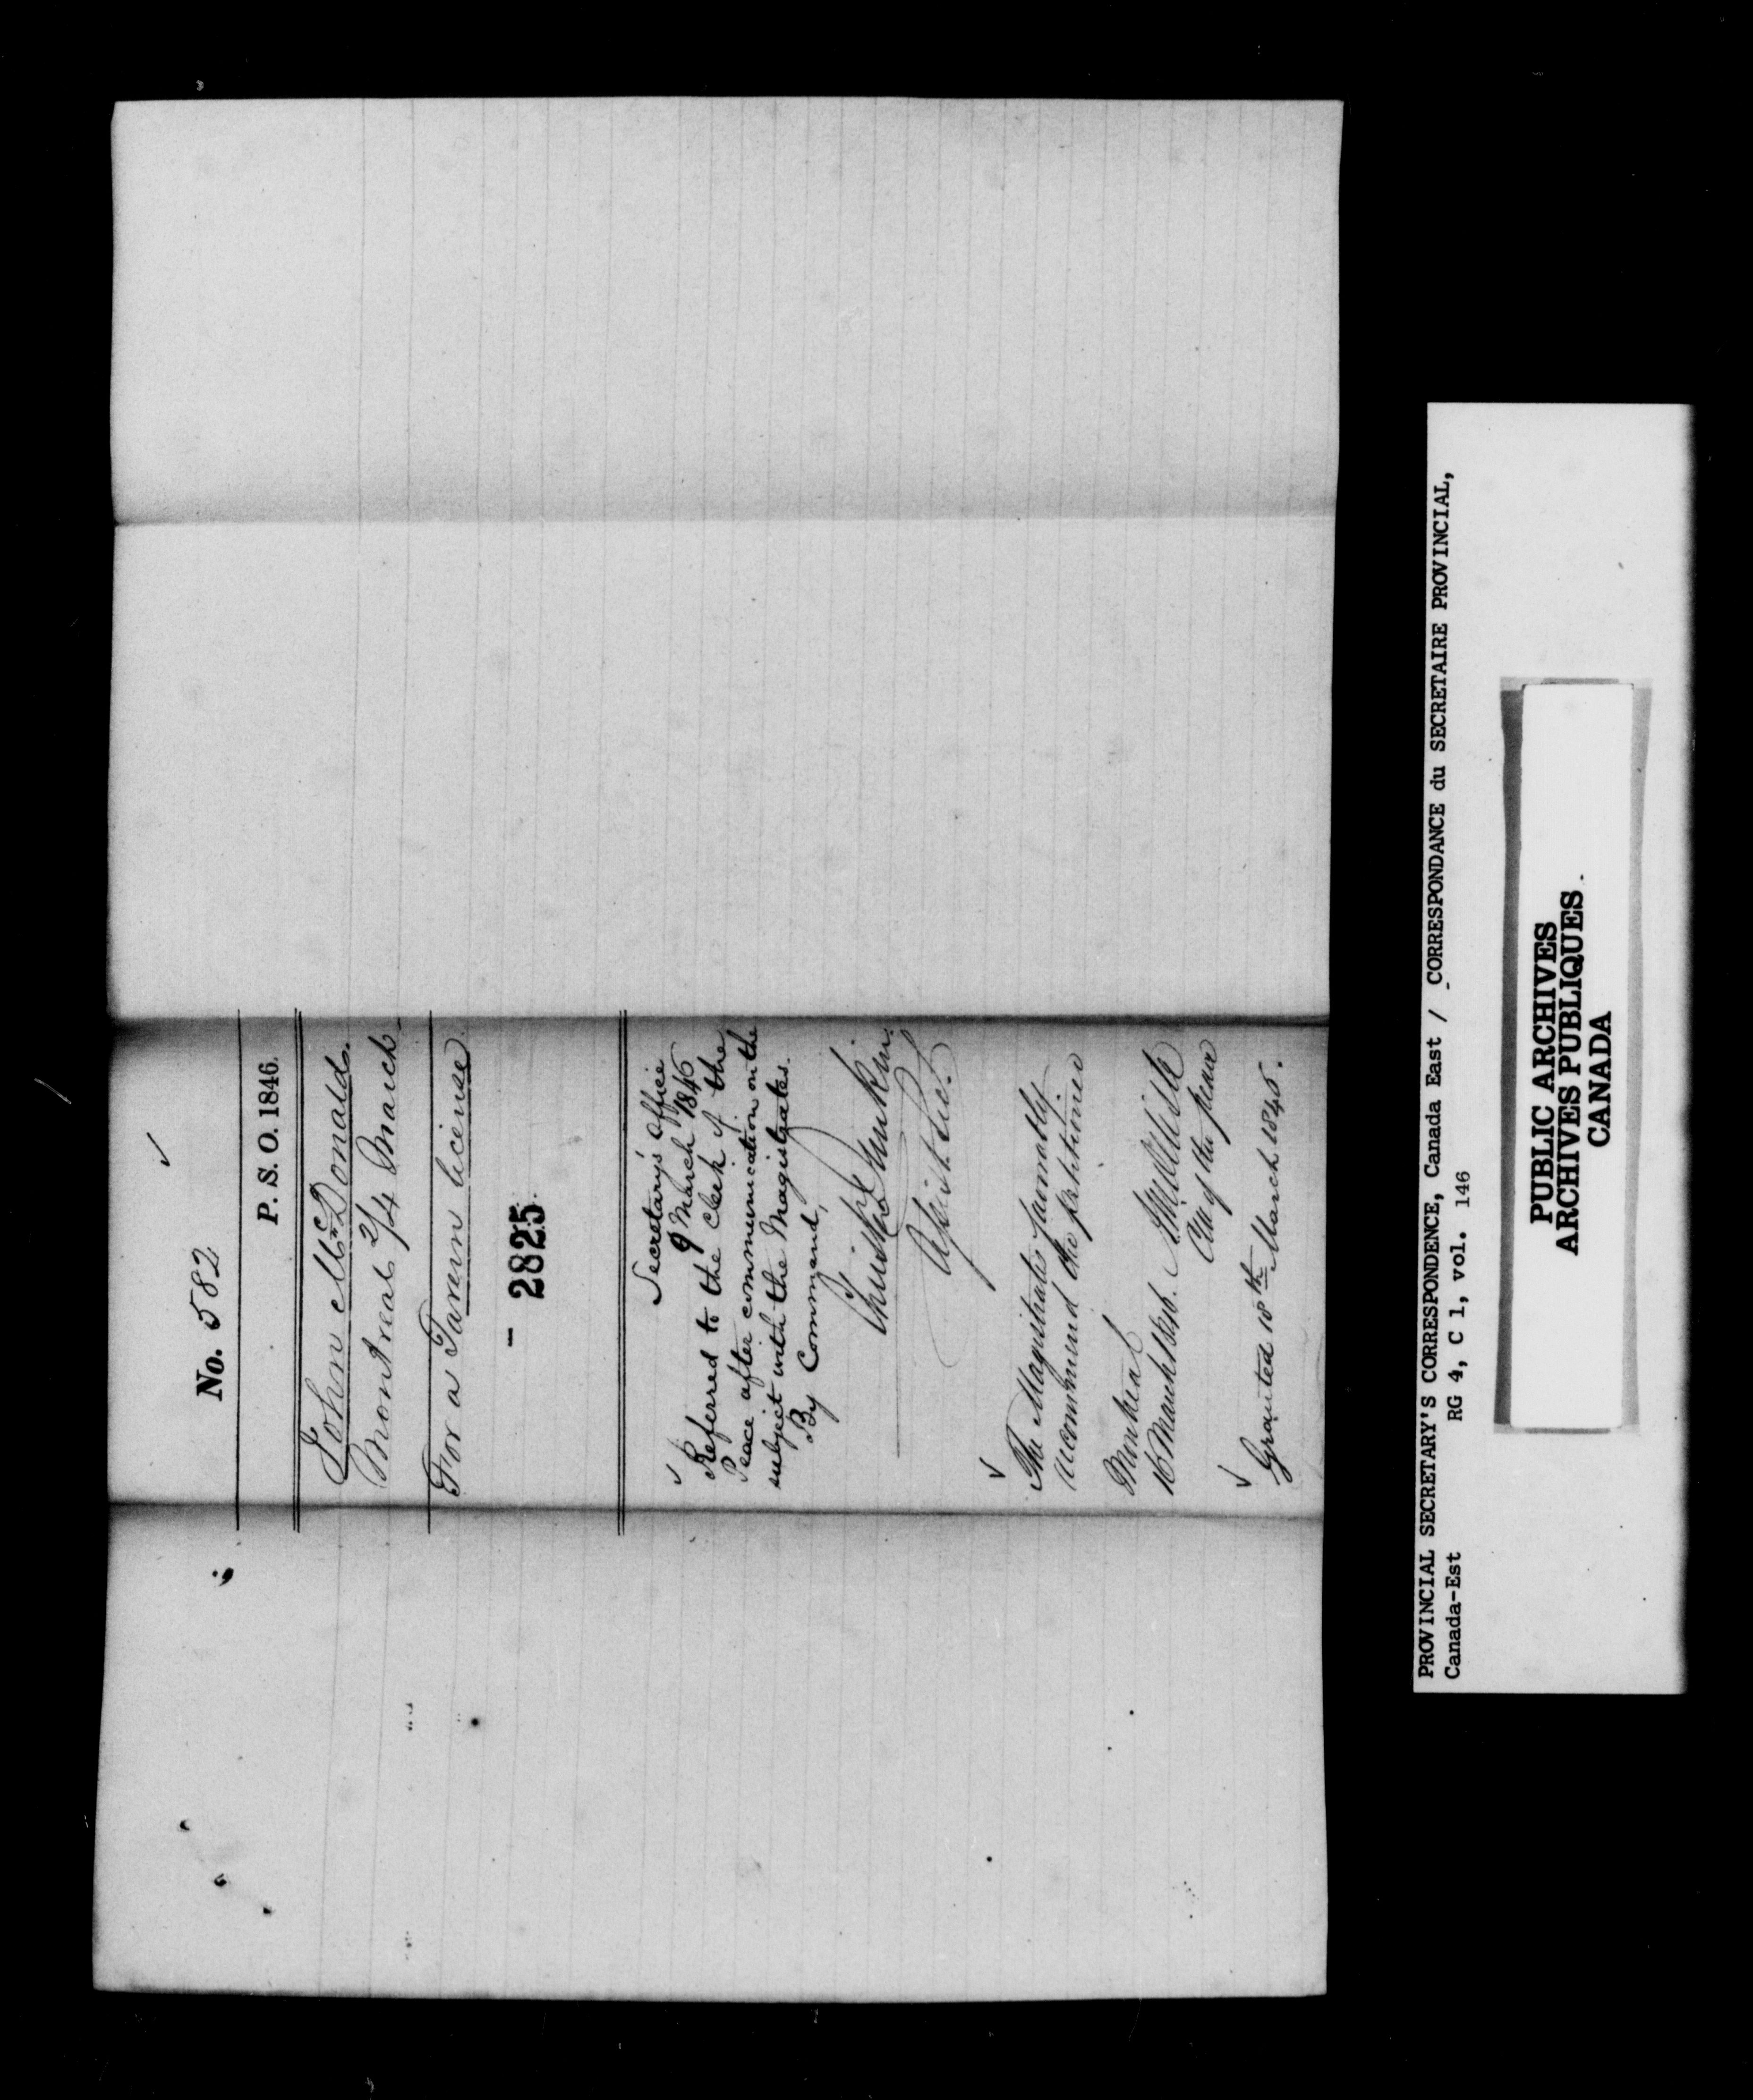 No. 582
P. S. O. 1846.
John McDonald.
Montreal 2/4 March
For a Tavern license
- 2825.
Secretary's Office
9 March 1846
Referred to the Clerk of the
Peace after communication on the
subject with the Magistrates.
By Command,
Christopher Dunkin
Assist Sec.
The Magistrates favorably
recommend the petitioner
Montreal
16 March 1846.
Clk of the peace
Granted 18th March 1846.
PROVINCIAL SECRETARY'S CORRESPONDENCE, Canada East / CORRESPONDANCE du SECRETAIRE PROVINCIAL,
Canada-Est RG 4, C 1, vol. 146
PUBLIC ARCHIVES
ARCHIVES PUBLIQUES
CANADA